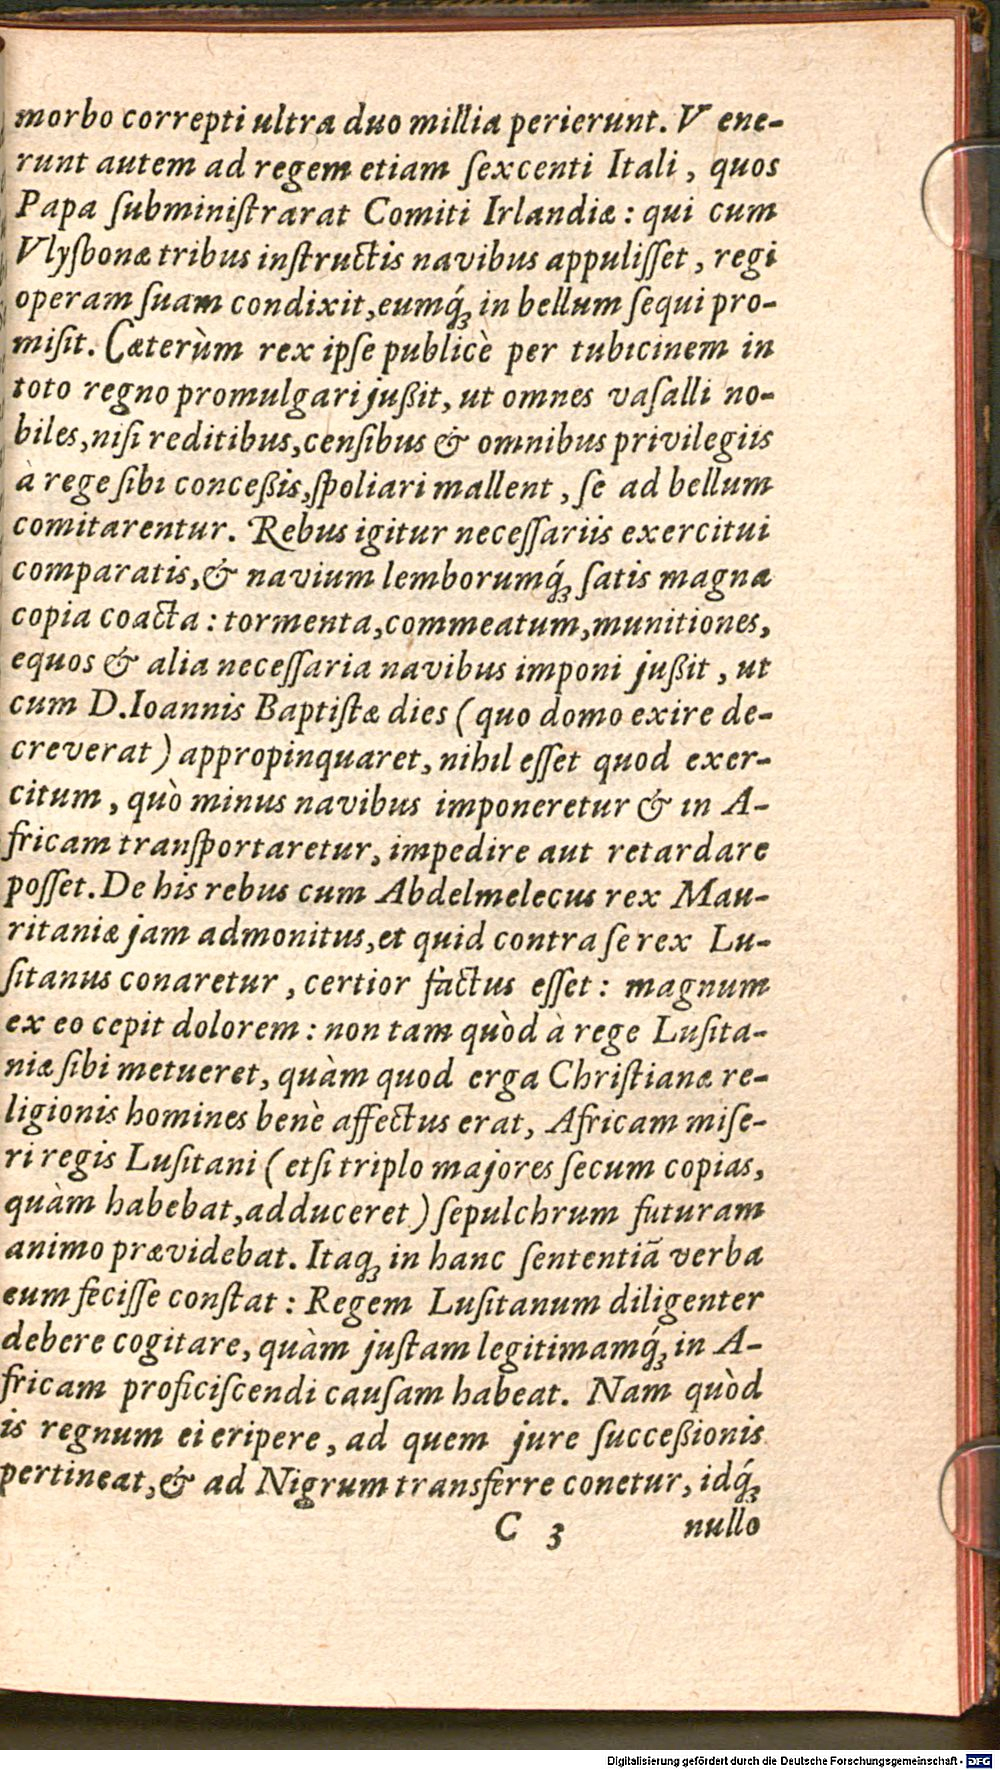 morbo correpti ultra duo millia perierunt. Vene-
runt autem ad regem etiam ſexcenti Itali, quos
Papa ſubminiſtrarat Comiti Irlandiæ: qui cum
Vlyſbonæ tribus inſtructis navibus appuliſſet, regi
operam ſuam condixit, eumq́ꝫ in bellum ſequi pro-
miſit. Cæterùm rex ipſe publicè per tubicinem in
toto regno promulgari jußit, ut omnes vaſalli no-
biles, niſi reditibus, cenſibus & omnibus privilegiis
à rege ſibi conceßis, ſpoliari mallent, ſe ad bellum
comitarentur. Rebus igitur neceſſariis exercitui
comparatis, & navium lemborumq́ꝫ ſatis magna
copia coacta: tormenta, commeatum, munitiones,
equos & alia neceſſaria navibus imponi jußit, ut
cum D. Ioannis Baptiſtæ dies (quo domo exire de-
creverat) appropinquaret, nihil eſſet quod exer-
citum, quò minus navibus imponeretur & in A-
fricam tranſportaretur, impedire aut retardare
poſſet. De his rebus cum Abdelmelecus rex Mau-
ritaniæ jam admonitus, et quid contra ſe rex Lu-
ſitanus conaretur, certior factus eſſet: magnum
ex eo cepit dolorem: non tam quòd à rege Luſita-
niæ ſibi metueret, quàm quod erga Chriſtianæ re-
ligionis homines benè affectus erat, Africam miſe-
ri regis Luſitani (etſi triplo majores ſecum copias,
quàm habebat, adduceret) ſepulchrum futuram
animo prævidebat. Itaqꝫ in hanc ſententiã verba
eum feciſſe conſtat: Regem Luſitanum diligenter
debere cogitare, quàm juſtam legitimamq́ꝫ in A-
fricam proficiſcendi cauſam habeat. Nam quòd
is regnum ei eripere, ad quem jure ſucceßionis
pertineat, & ad Nigrum transferre conetur, idq́ꝫ
C 3 nullo
Digitalisierung gefördert durch die Deutsche Forschungsgemeinschaft - DFG